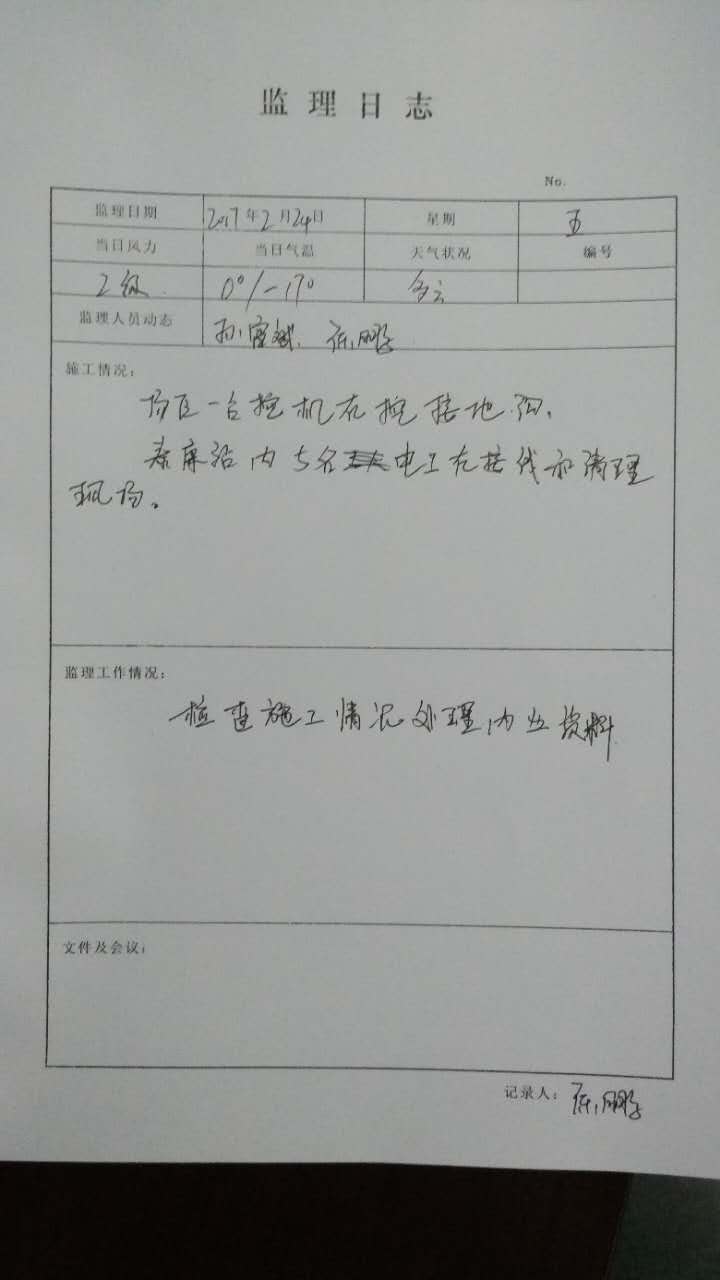 监理日志
No.
监理日期 2017年2月24日 星期 五
当日风力 当日气温 天气状况 编号
2级 0°/-17° 多云
监理人员动态
施工情况：
场区一台挖机在挖接地沟,
站内5名电工在接线和清理
现场。
监理工作情况：
检查施工情况处理内业资料
文件及会议：
记录人：